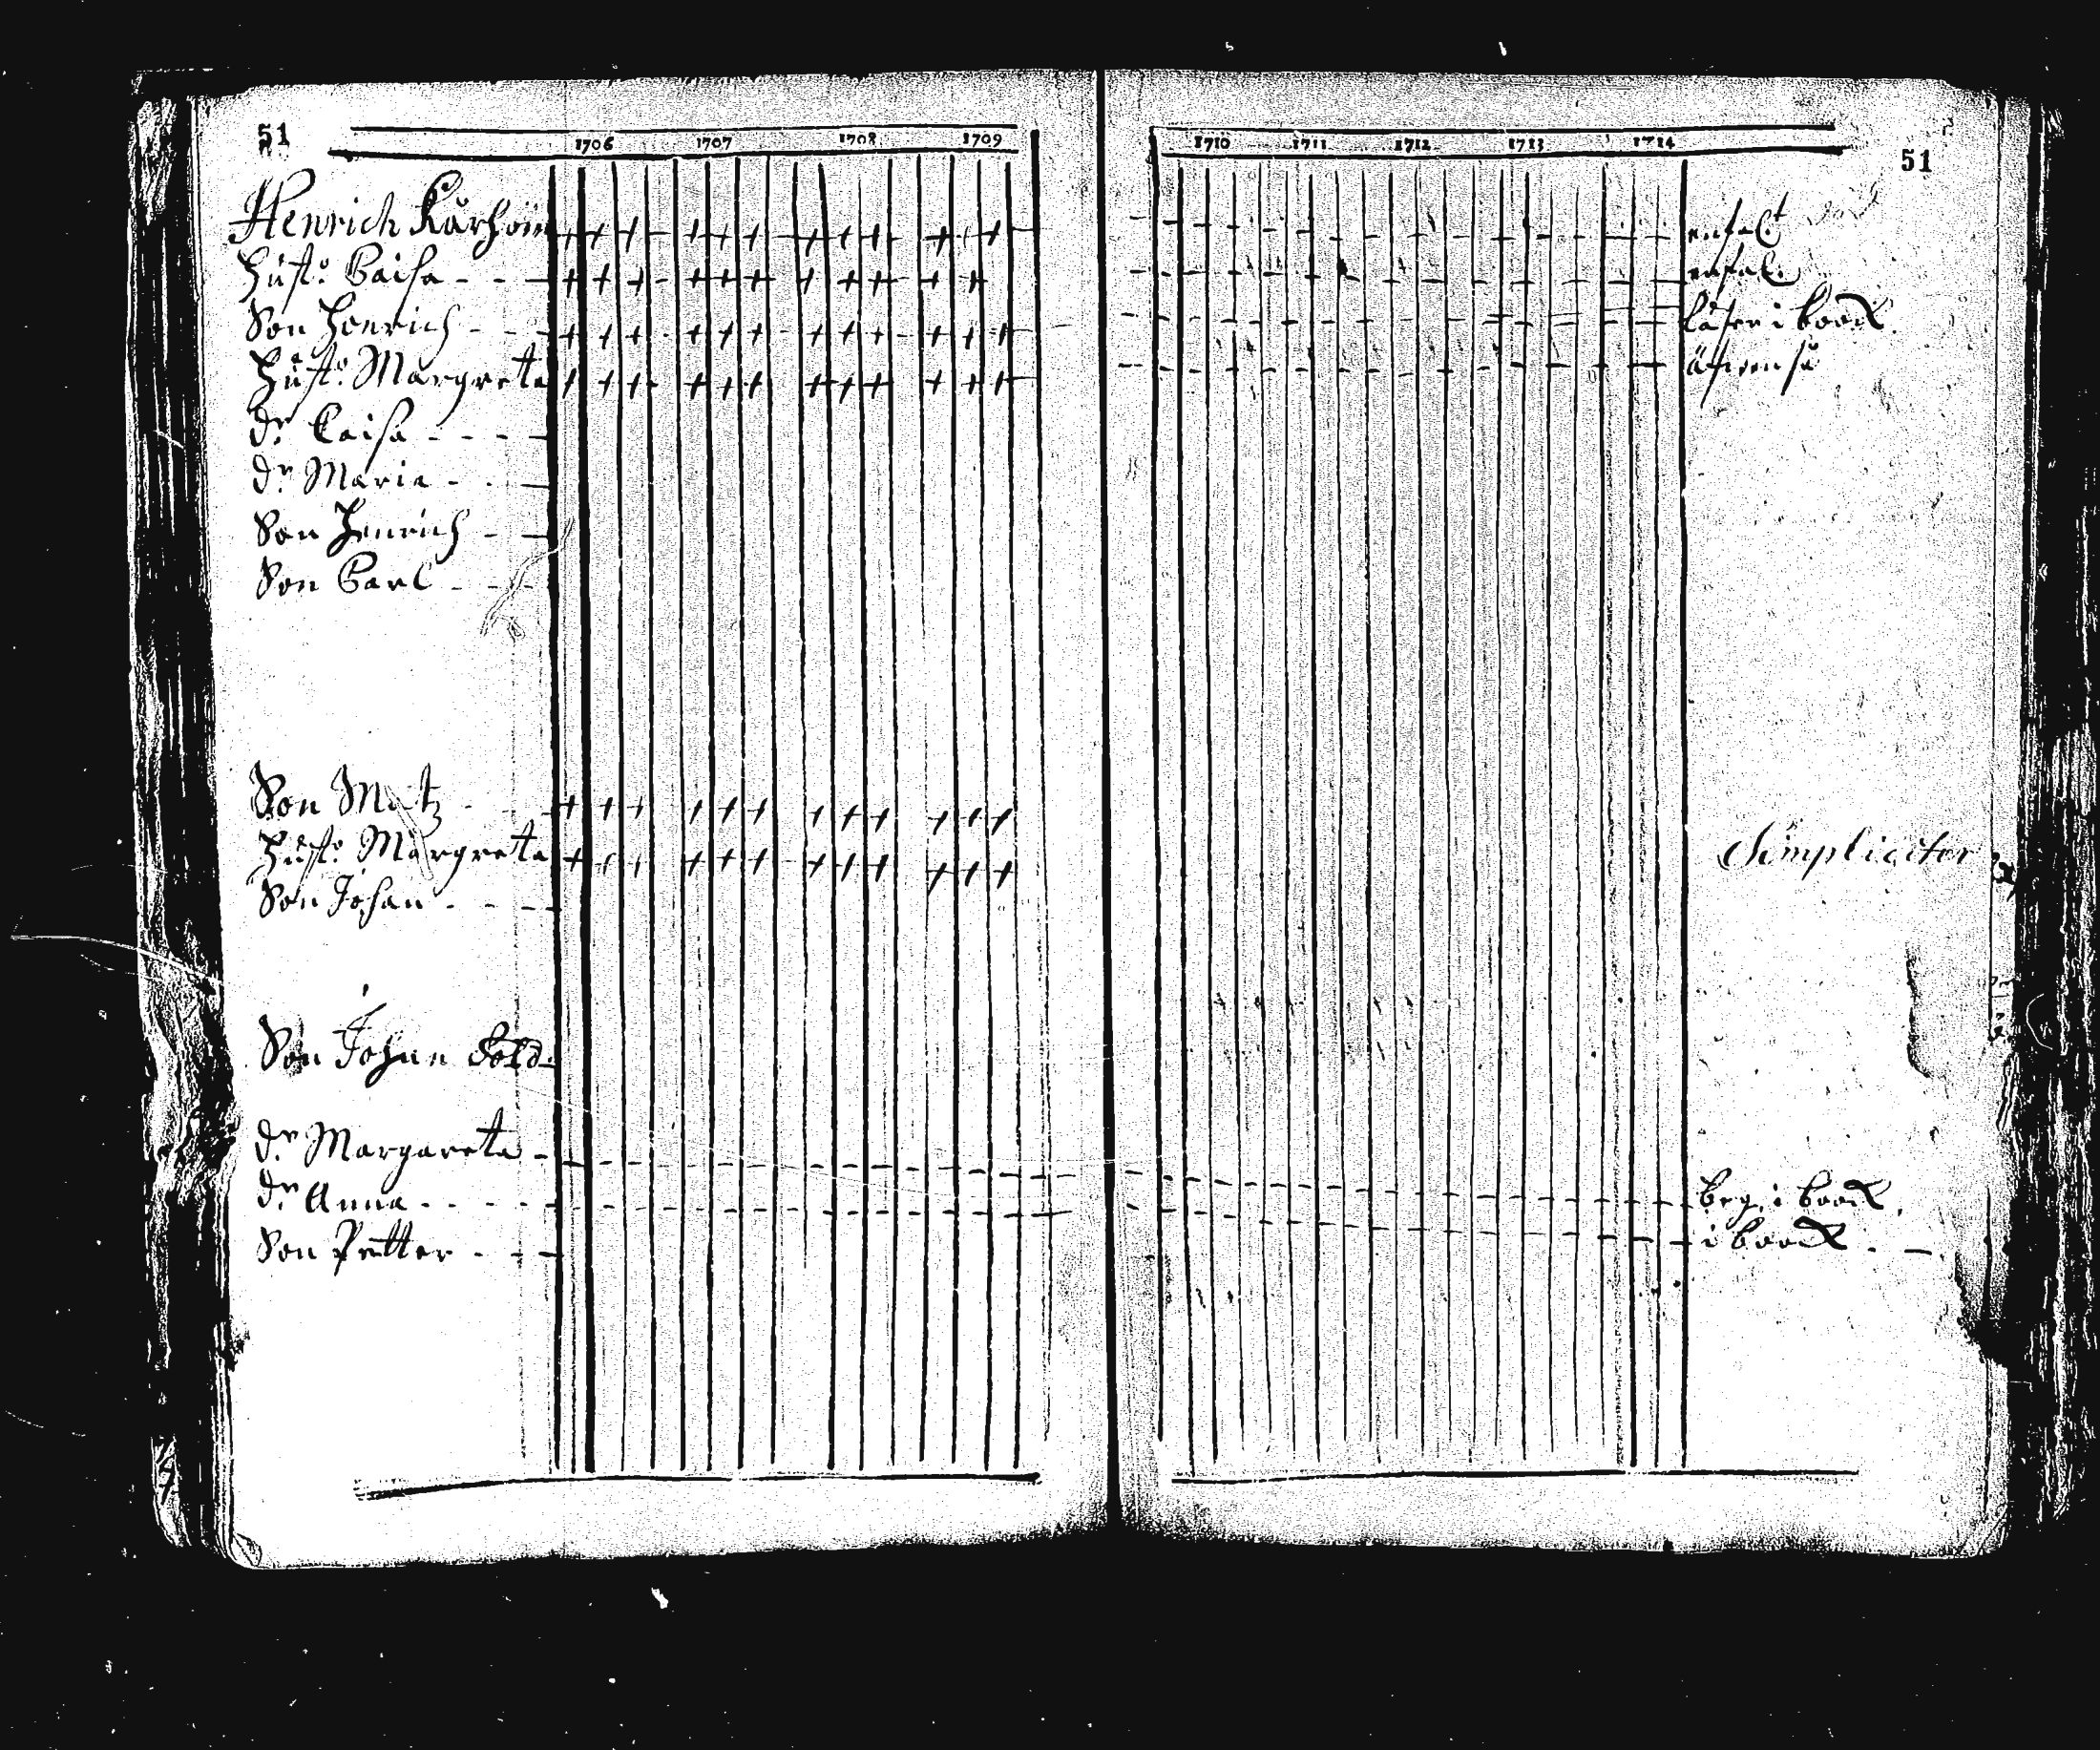 51
1706 1707 1708 1709
Henrich Kårhoin
Hust: Caisa
Son Henrich
Hust: Margreta
dr Caisa
dr Maria
Son Henrich
Son Carl
Son Matz
Hust: Margreta
Son Johan
Son Johan Sold:
dr Margareta
dr Anna
Son Petter
1710 1711 1712 1713 1714
51
enfalt
enfal:
läser i book
Simpliciter
beg. i book
i book